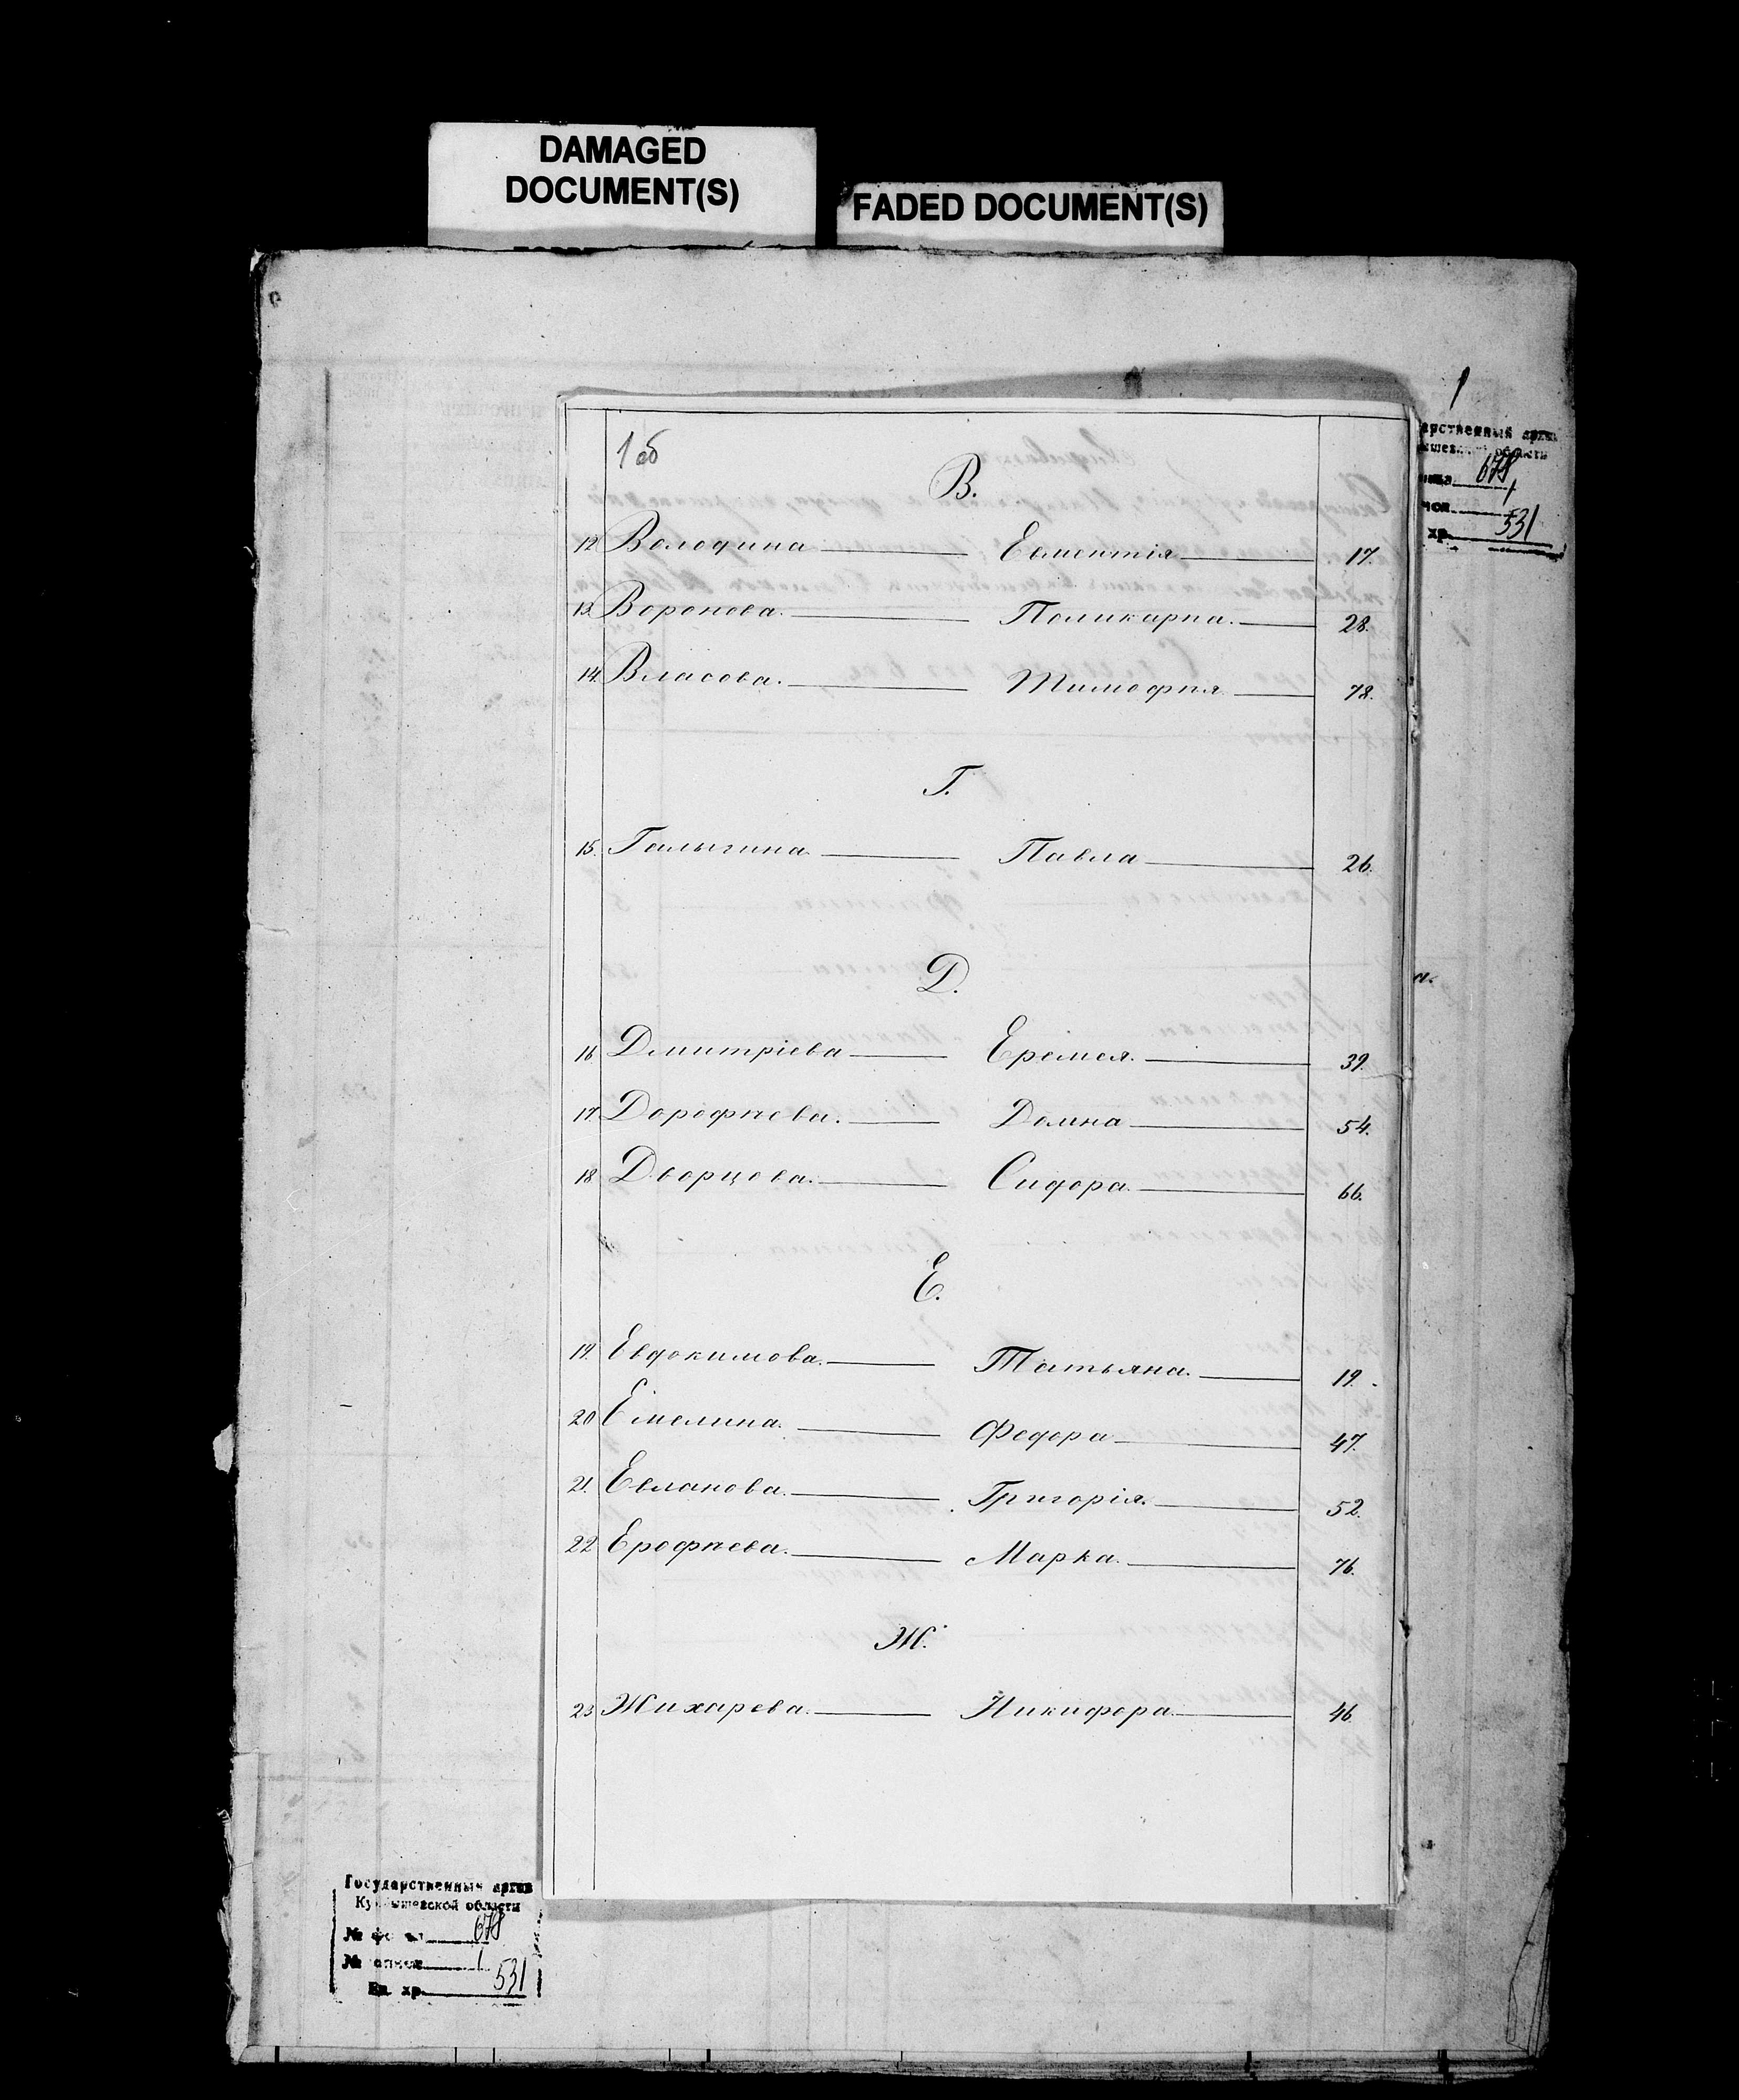 DAMAGED
DOCUMENT(S)
FADED DOCUMENT(S)
1
678
1
531
1об
В.
12 Володина — Евментія — 17.
13. Воронова. — Поликарпа. — 28.
14. Власова. — Тимофѣя — 78.
Г.
15. Галыгина — Павла — 26.
Д.
16 Дмитріева — Еремея. — 39.
17. Дорофѣева. — Домна — 54.
18 Дворцова. — Сидора — 66.
Е.
19. Евдокимова. — Татьяна. — 19.
20 Емелина. — Федора — 47.
21. Евланова. — Григорія. — 52.
22 Ерофѣева. — Марка. — 76.
Ж.
23 Жихарева. — Никифора — 46.
Государственный архив
Куйбышевской области
№ фонда 678
№ описи 1
Ед. хр. 531